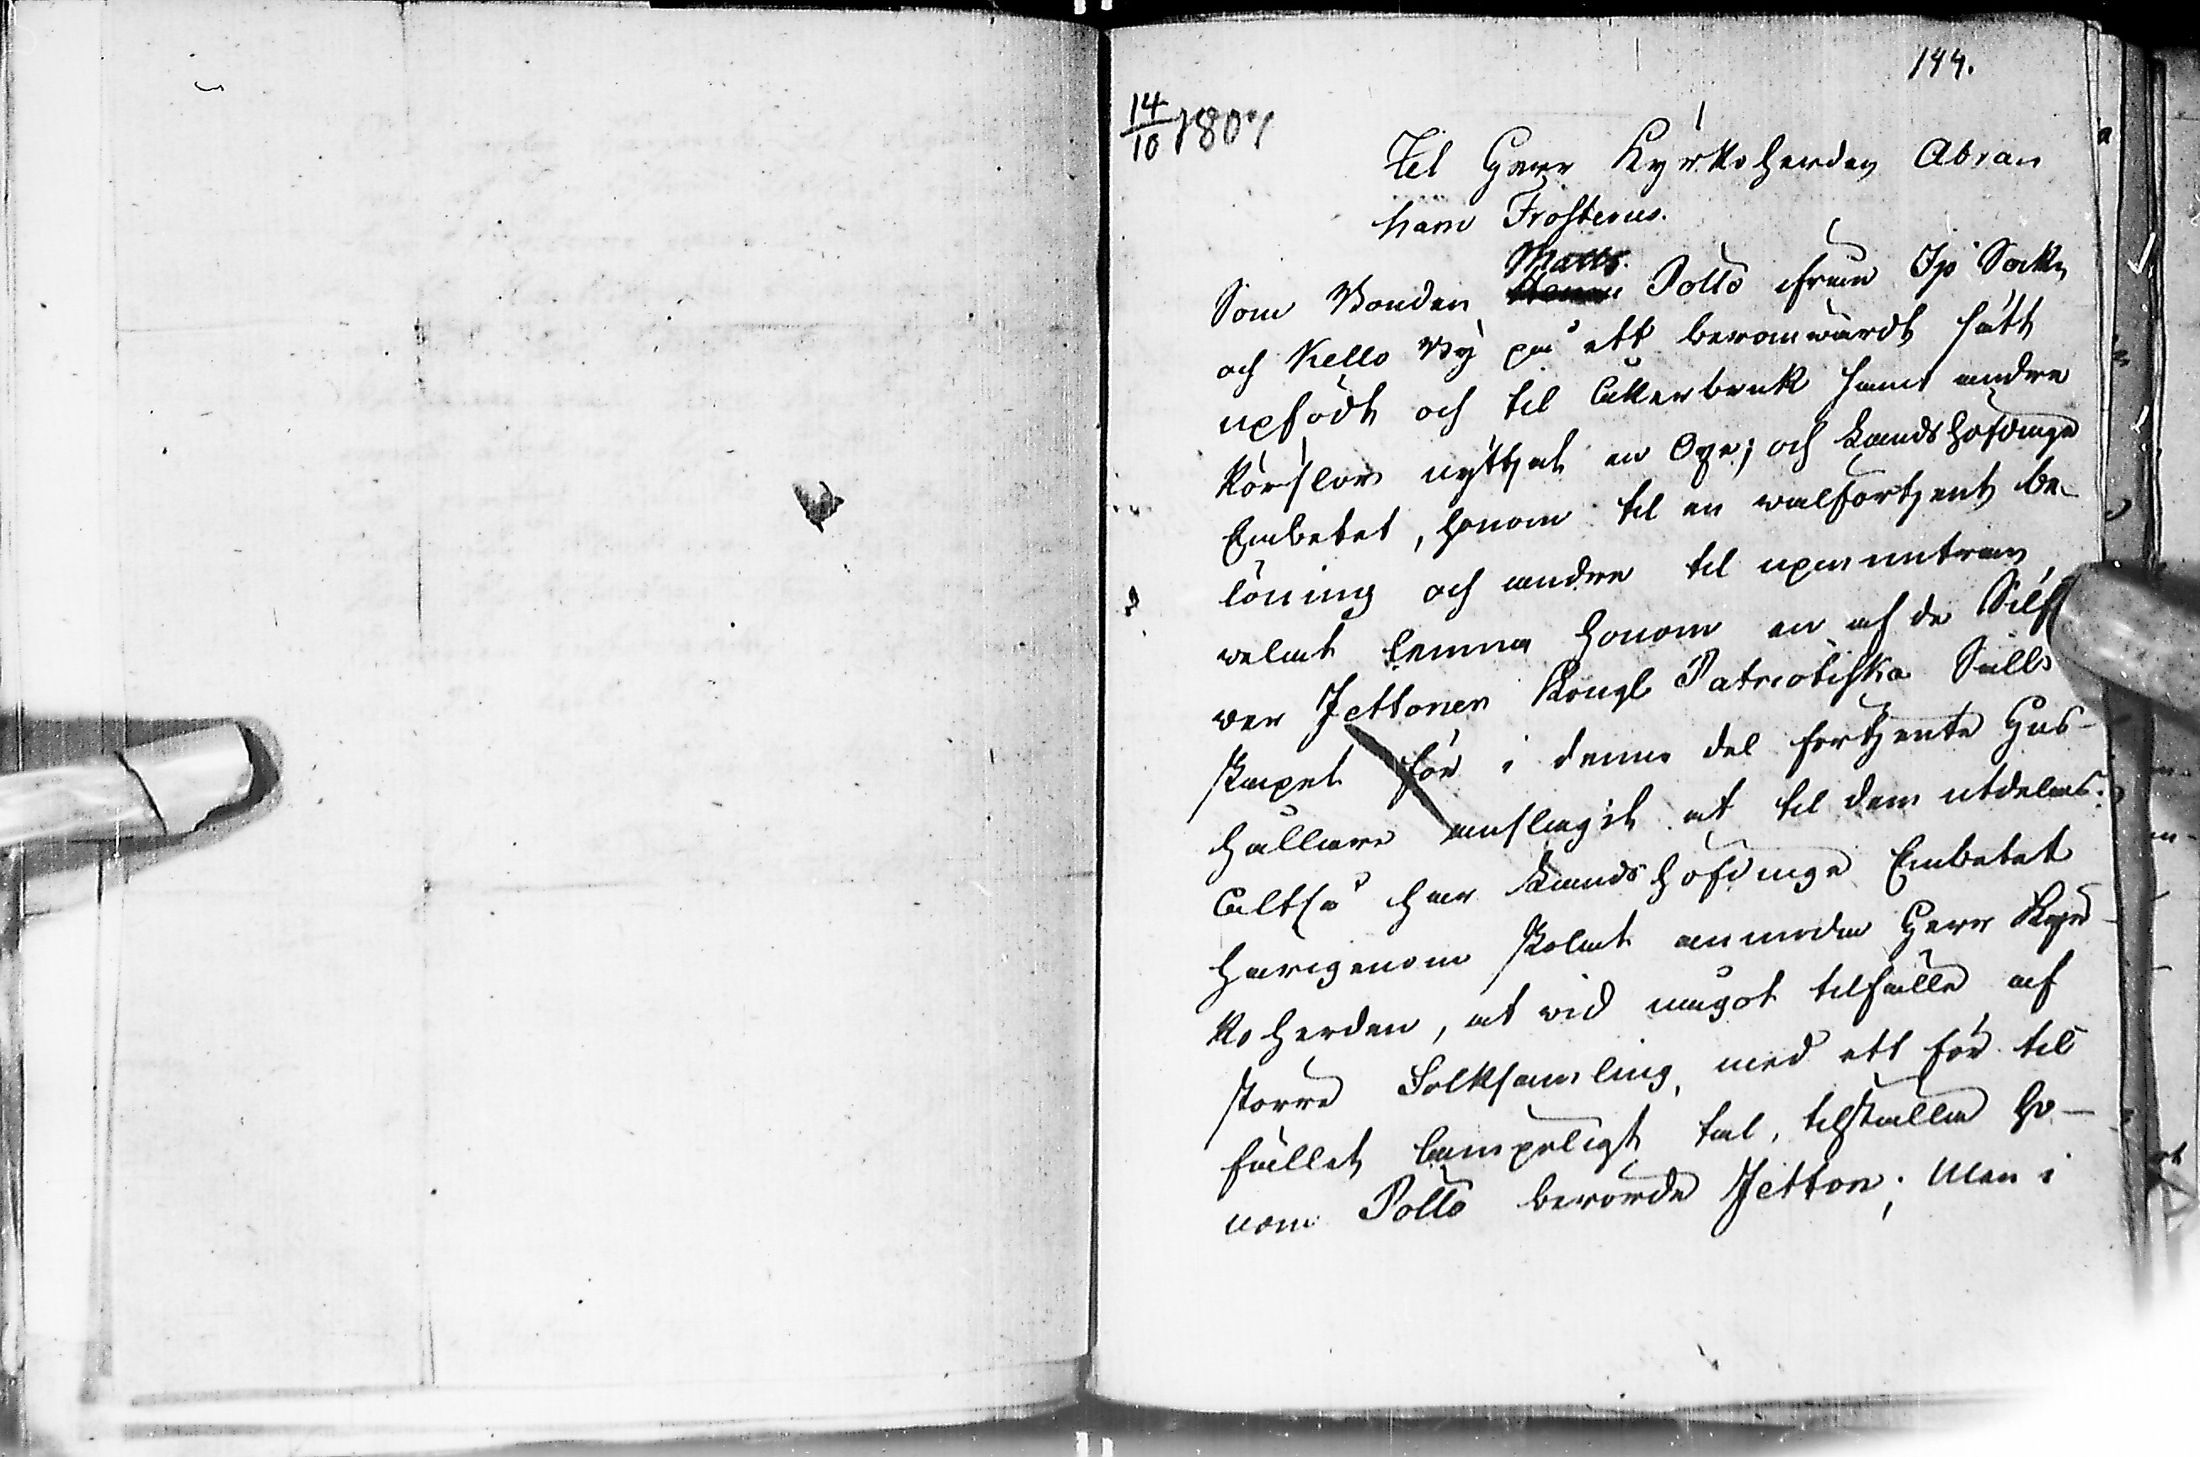 144.
14/10 1807
Til Herr Kyrkoherden Abra-
ham Frosterus.
Matts
Som Bonden Pollo ifrån Ijo Sockn
och Kello By på ett berömwärdt sätt
upfödt och til Åkerbruk samt andra
körslor nyttjat en Oxe; och Landshöfdinge
Embetet, honom til en wälförtjent be-
löning och andra til upmuntran,
welat lemna honom en af de Silf-
wer Jettoner Kongl Patriotiska Sälls
skapet för i denna del förtjente Hus-
hållare anslagit at til dem utdelas:
Altså har Landshöfdinge Embetet
härigenom skolat anmoda Herr Kyr-
koherden, at wid något tilfälle af
större Folksamling, med ett för til-
fället lämpeligt tal, tilställa ho-
nom Pollo berörde Jetton; Men i